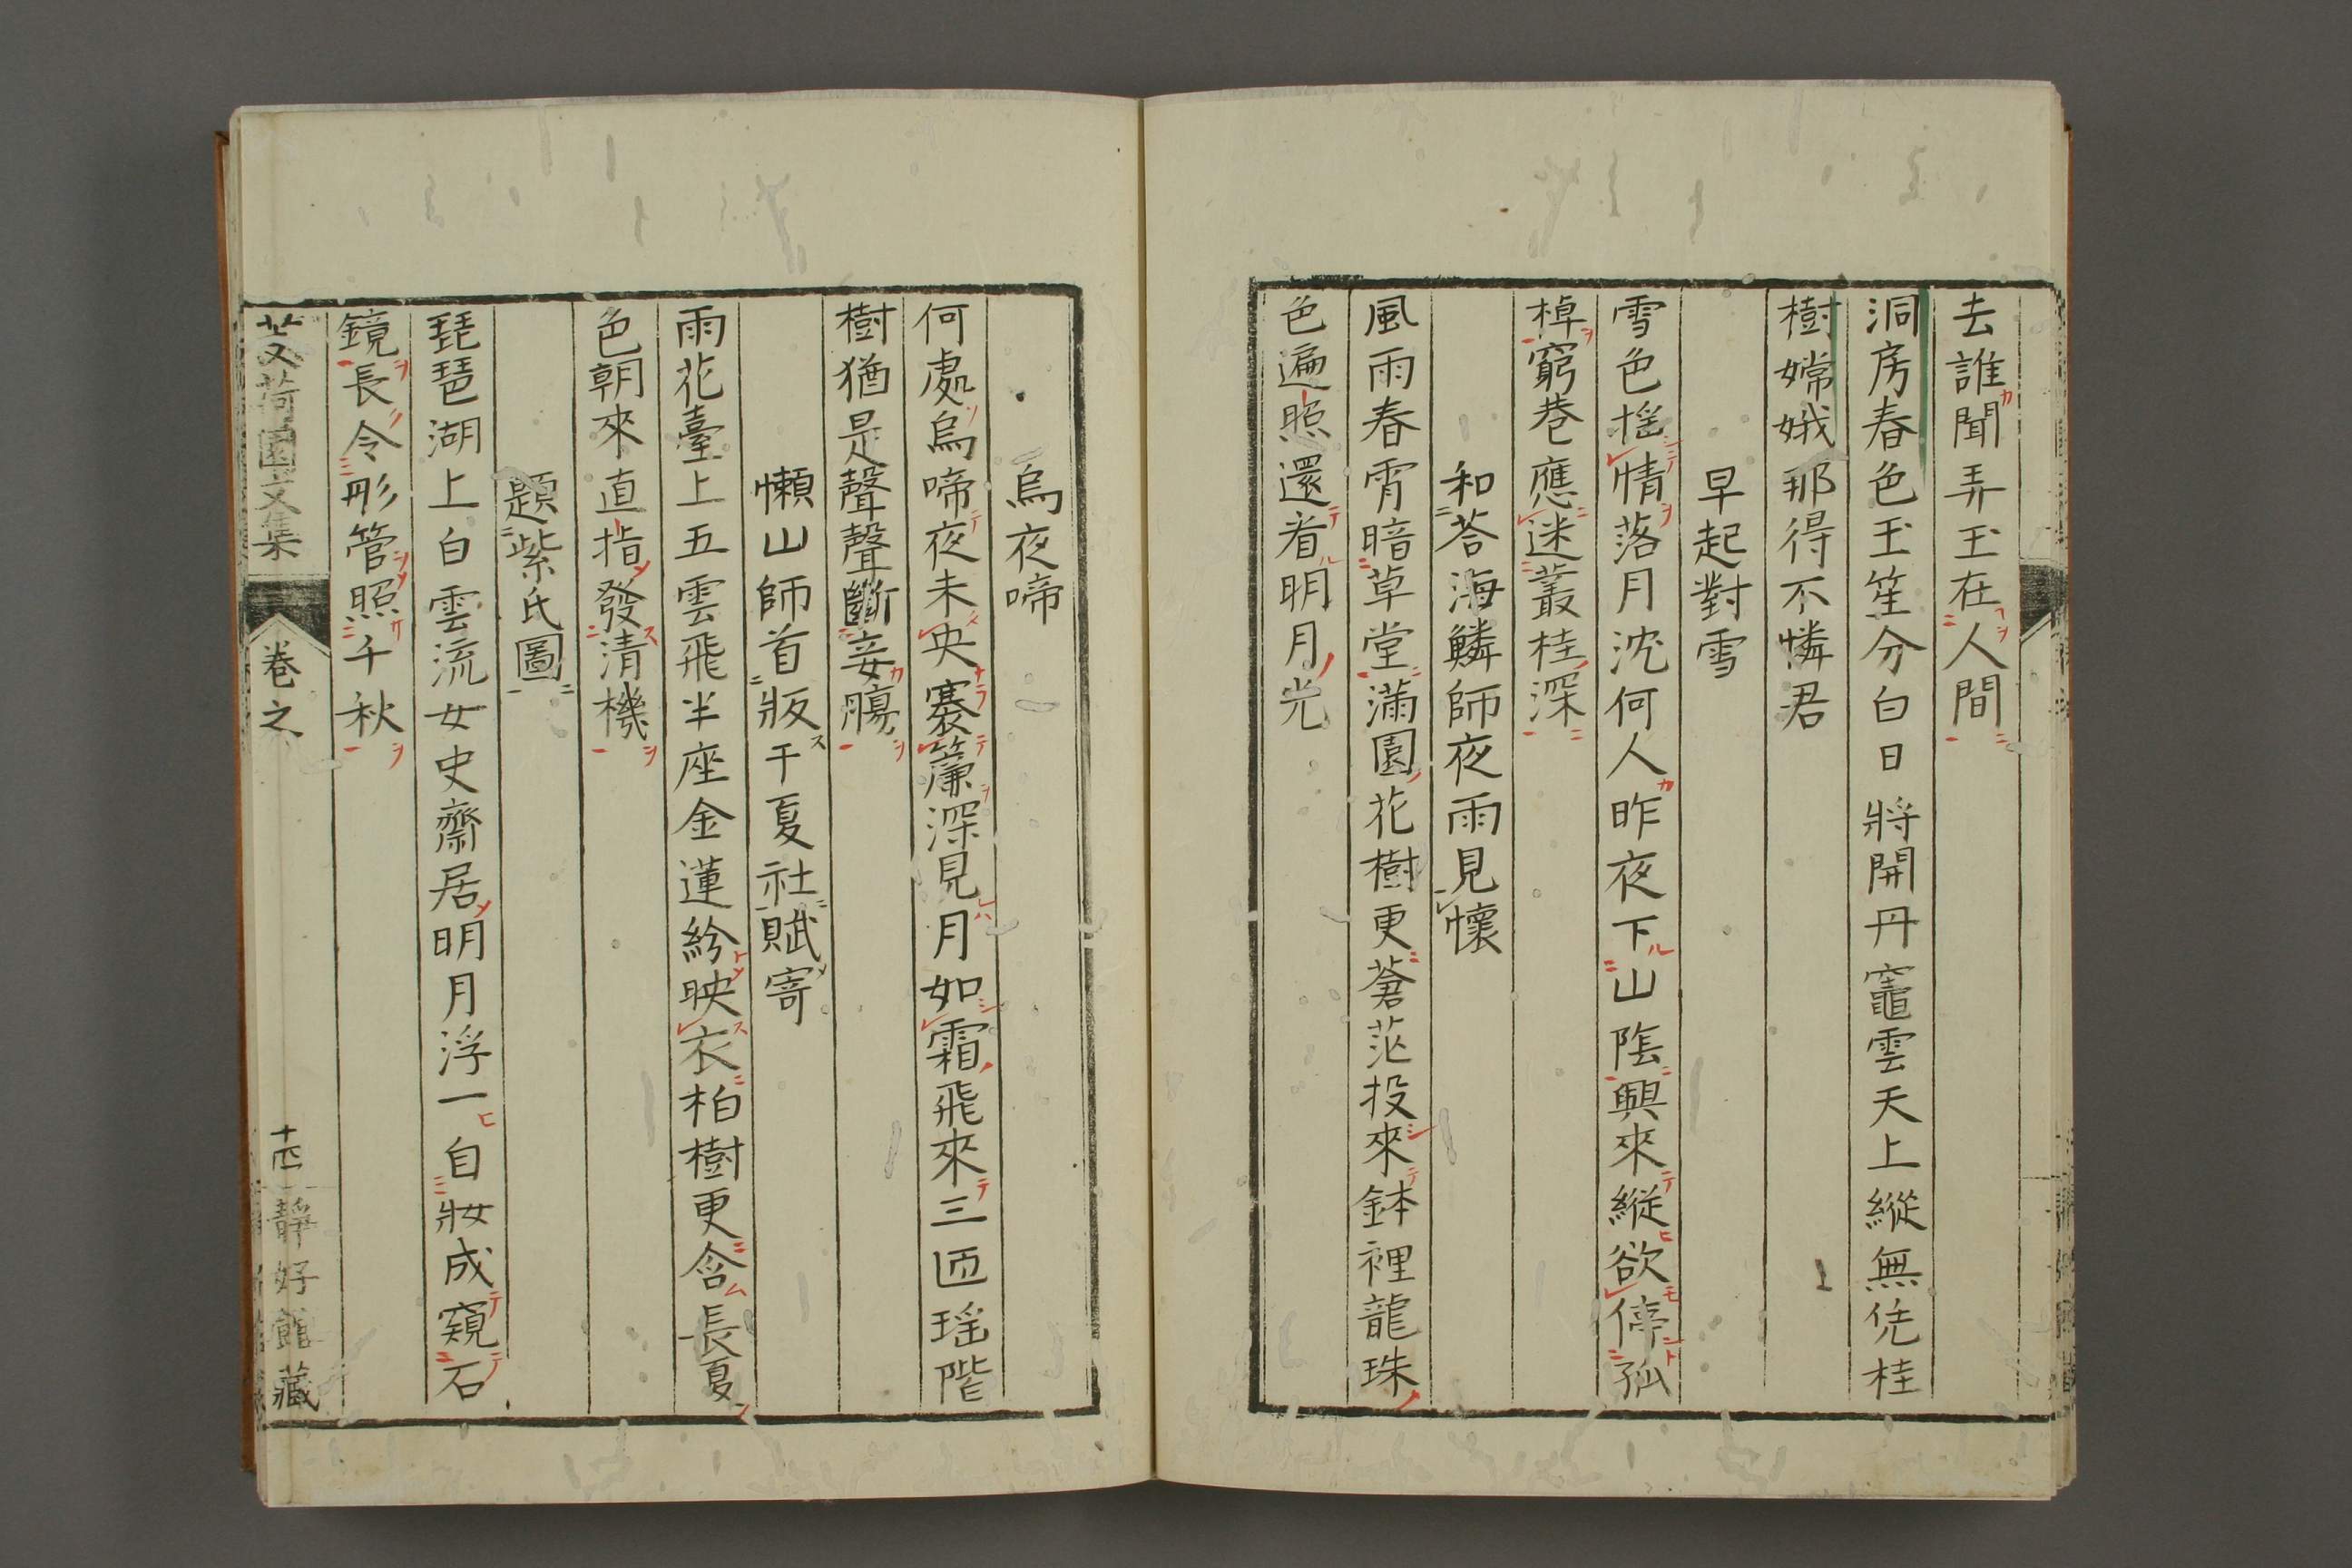 去誰聞弄玉在人間
洞房春色玉笙分白日將開丹竈雲天上縱無凭桂
樹嫦娥那得不憐君
早起對雪
雪色搖情落月沈何人昨夜下山陰興來縱欲停孤
棹窮巷應迷叢桂深
和荅海鱗師夜雨見懷
風雨春宵暗草堂滿園花樹更蒼茫投來鉢裡龍珠
色遍照還看明月光
烏夜啼
何處烏啼夜未央褰簾深見月如霜飛來三匝瑤階
樹猶是聲聲斷妾膓
懶山師首版干夏社賦寄
雨花臺上五雲飛半座金蓮紛映衣柏樹更含長夏
色朝來直指發清機
題紫氏圖
琵琶湖上白雲流女史齋居明月浮一自妝成窺石
鏡長令彤管照千秋
芰荷園文集 卷之 十四 靜好館藏